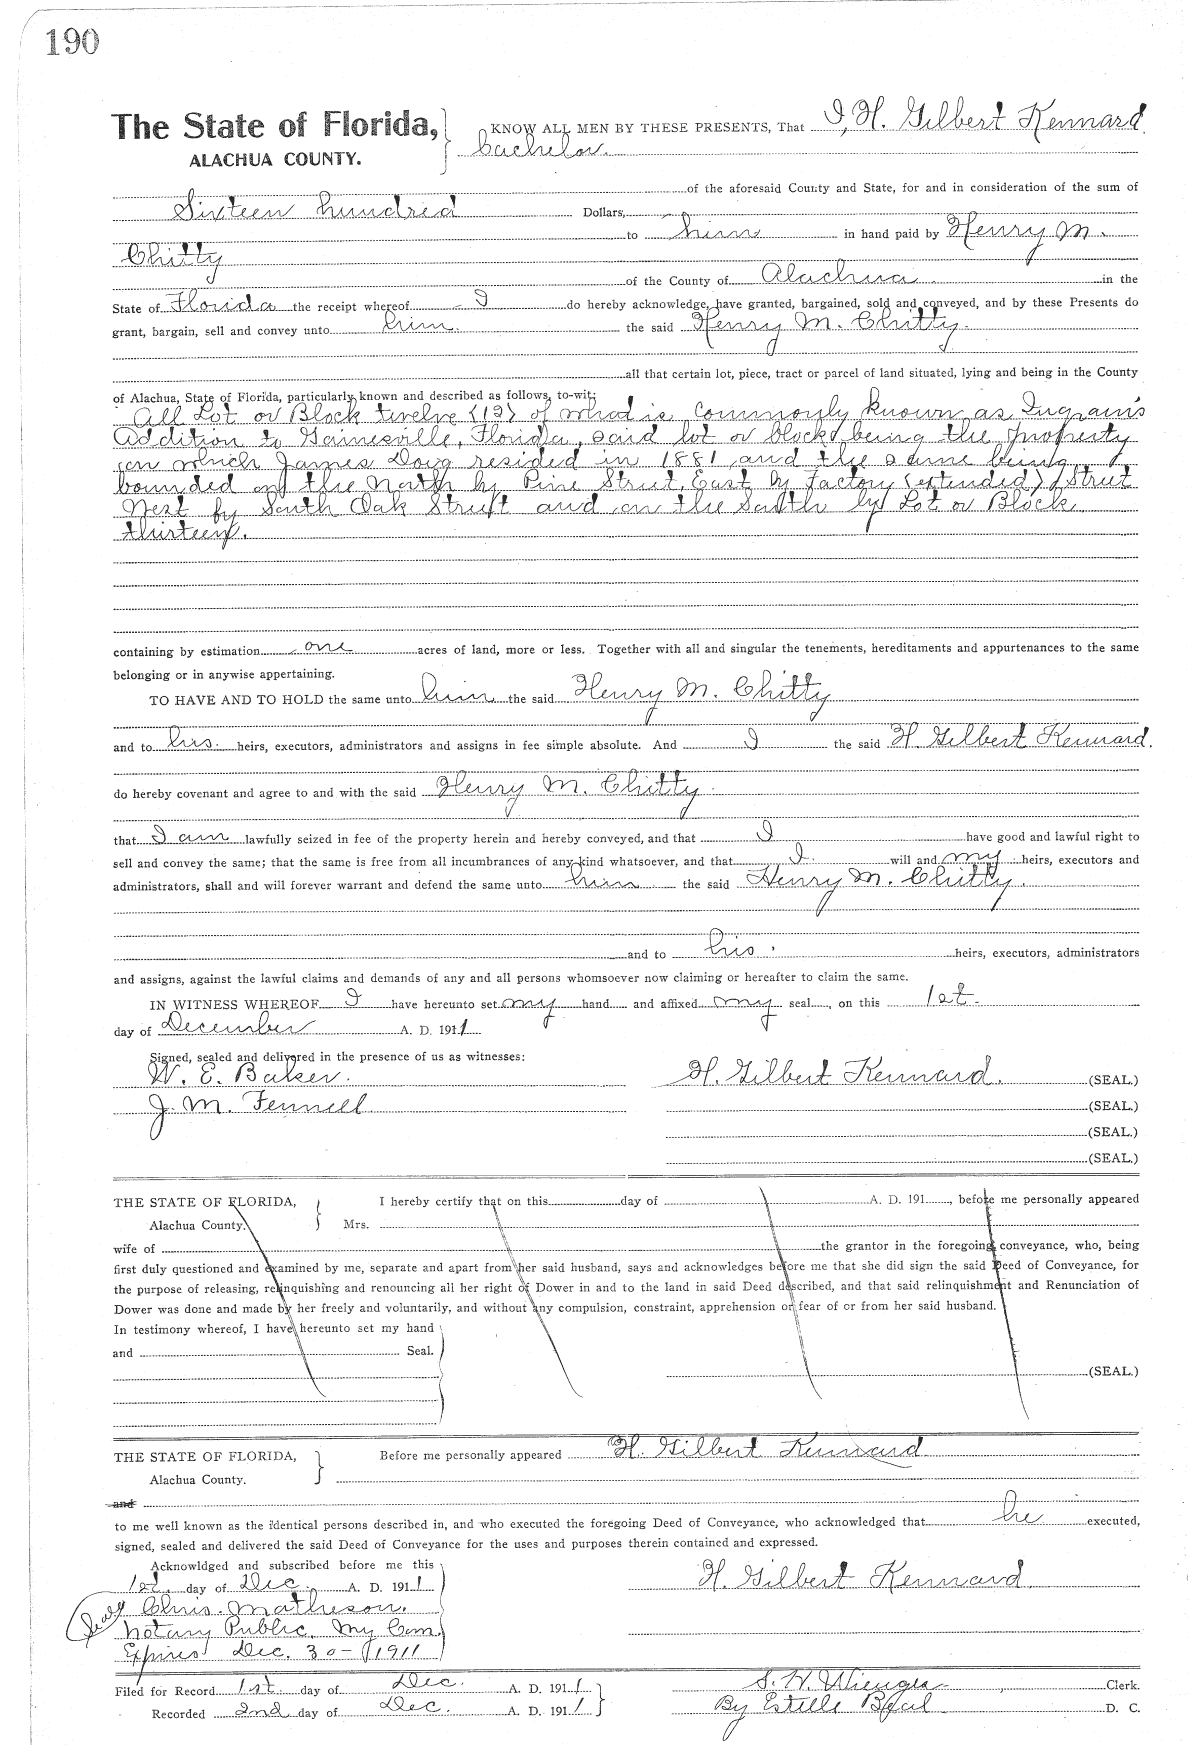 190
The State of Florida,
ALACHUA COUNTY.
KNOW ALL MEN BY THESE PRESENTS, That I, H. Gilbert Kennard
bachelor.
of the aforesaid County and State, for and in consideration of the sum of
Sixteen hundred Dollars,
to him in hand paid by Henry M.
Chitty
of the County of Alachua in the
State of Florida the receipt whereof I do hereby acknowledge, have granted, bargained, sold and conveyed, and by these Presents do
grant, bargain, sell and convey unto him the said Henry M. Chitty.
all that certain lot, piece, tract or parcel of land situated, lying and being in the County
of Alachua, State of Florida, particularly known and described as follows, to-wit:
All Lot or Block twelve (12) of what is commonly known as Ingram's
Addition to Gainesville, Florida, said lot or block being the property
on which James Doig resided in 1881 and the same being
bounded on the North by Pine Street, East by Factory (extended) Street
West by South Oak Street and on the South by Lot or Block
thirteen.
containing by estimation one acres of land, more or less. Together with all and singular the tenements, hereditaments and appurtenances to the same
belonging or in anywise appertaining.
TO HAVE AND TO HOLD the same unto him the said Henry M. Chitty
and to his heirs, executors, administrators and assigns in fee simple absolute. And I the said H. Gilbert Kennard.
do hereby covenant and agree to and with the said Henry M. Chitty
that I am lawfully seized in fee of the property herein and hereby conveyed, and that I have good and lawful right to
sell and convey the same; that the same is free from all incumbrances of any kind whatsoever, and that I will and my heirs, executors and
administrators, shall and will forever warrant and defend the same unto him the said Henry M. Chitty.
and to his heirs, executors, administrators
and assigns, against the lawful claims and demands of any and all persons whomsoever now claiming or hereafter to claim the same.
IN WITNESS WHEREOF I have hereunto set my hand and affixed my seal, on this 1st
day of December A. D. 1911
Signed, sealed and delivered in the presence of us as witnesses:
W. E. Baker. H. Gilbert Kennard. (SEAL.)
J. M. Fennell (SEAL.)
(SEAL.)
(SEAL.)
THE STATE OF FLORIDA, I hereby certify that on this day of A. D. 191, before me personally appeared
Alachua County. Mrs.
wife of the grantor in the foregoing conveyance, who, being
first duly questioned and examined by me, separate and apart from her said husband, says and acknowledges before me that she did sign the said Deed of Conveyance, for
the purpose of releasing, relinquishing and renouncing all her right of Dower in and to the land in said Deed described, and that said relinquishment and Renunciation of
Dower was done and made by her freely and voluntarily, and without any compulsion, constraint, apprehension or fear of or from her said husband.
In testimony whereof, I have hereunto set my hand
and Seal.
(SEAL.)
THE STATE OF FLORIDA, Before me personally appeared H. Gilbert Kennard
Alachua County.
and
to me well known as the identical persons described in, and who executed the foregoing Deed of Conveyance, who acknowledged that he executed,
signed, sealed and delivered the said Deed of Conveyance for the uses and purposes therein contained and expressed.
Acknowldged and subscribed before me this
1st day of Dec. A. D. 1911 H. Gilbert Kennard
(Seal) Chris. Matheson.
Notary Public. My Com.
Expires Dec. 30-1911
Filed for Record 1st. day of Dec. A. D. 1911 S. H. Wienges Clerk.
Recorded 2nd day of Dec. A. D. 1911 By Estelle Beal D. C.